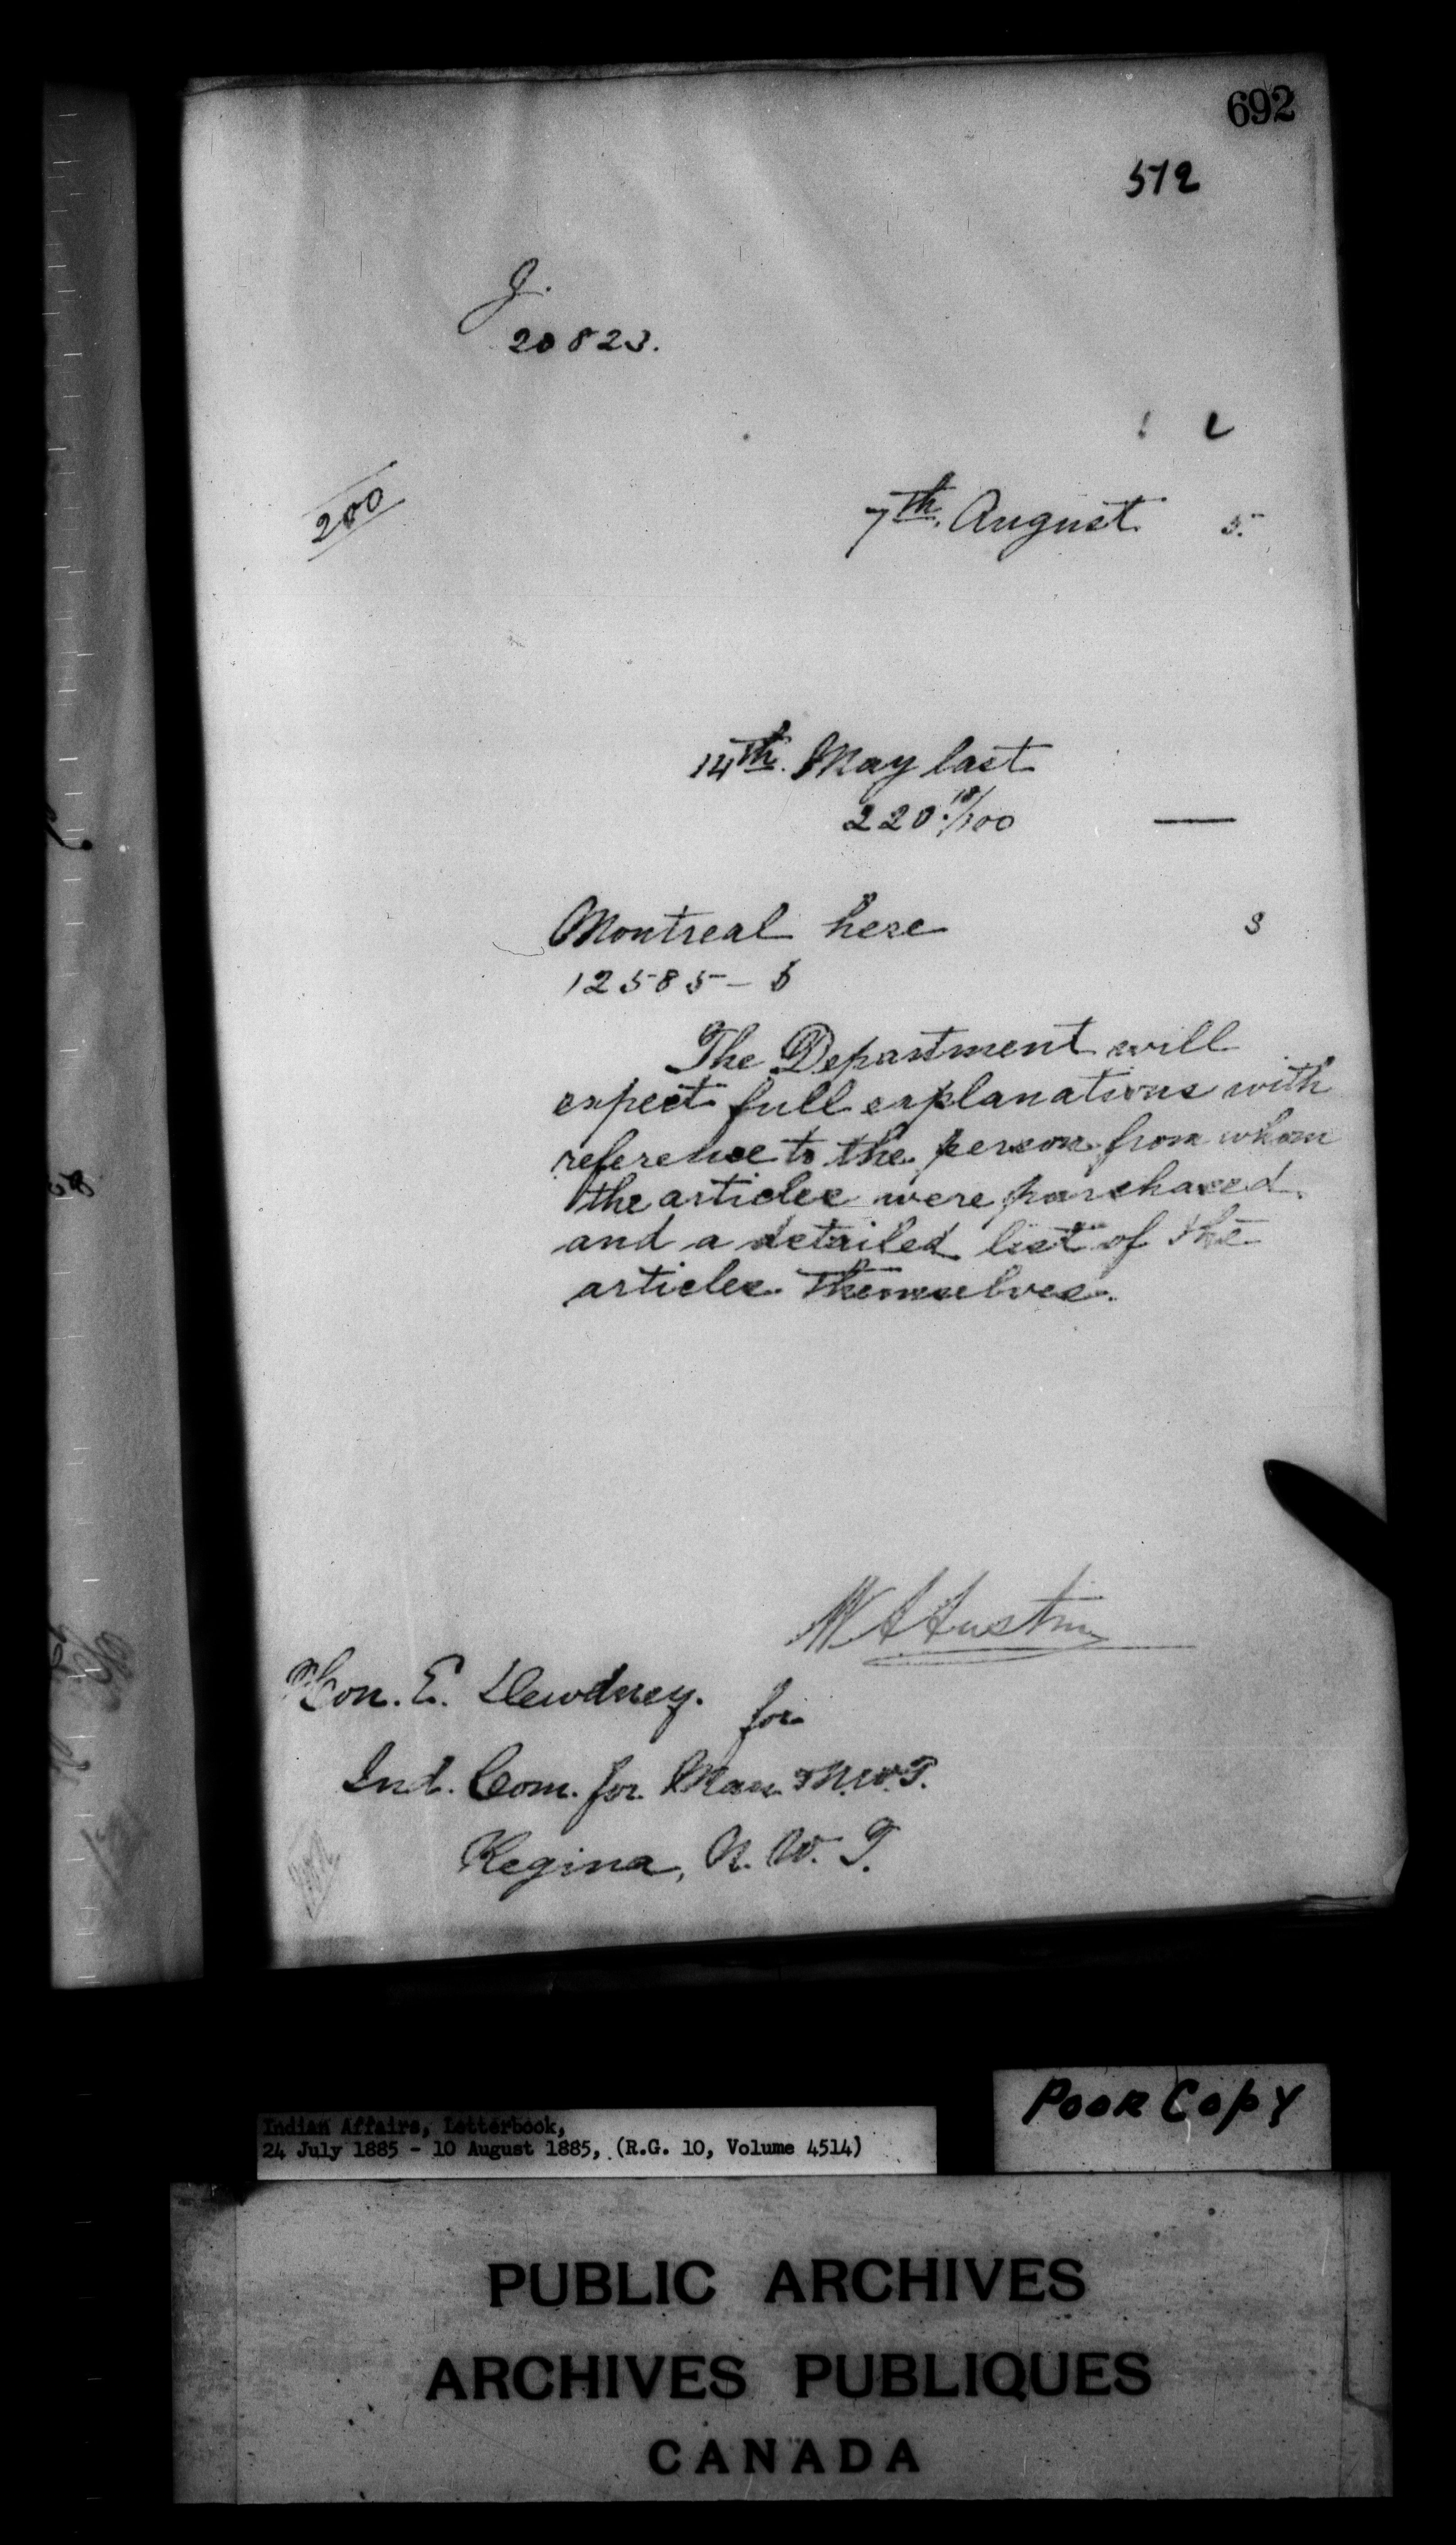 692
512
J.
20823.
200
7th. August 5.
14th. May last
220.18/100
Montreal here s
12585-5
The Department will
expect full explanations with
reference to the person from whom
the articles were purchased
and a detailed list of the
articles themselves.
W A Austin
Hon. E. Dewdney. for
Ind. Com. for Man. & N.W.T.
Regina, N. W. T.
Indian Affairs, Letterbook,
24 July 1885 - 10 August 1885, (R.G. 10, Volume 4514)
POOR COPY
PUBLIC ARCHIVES
ARCHIVES PUBLIQUES
CANADA